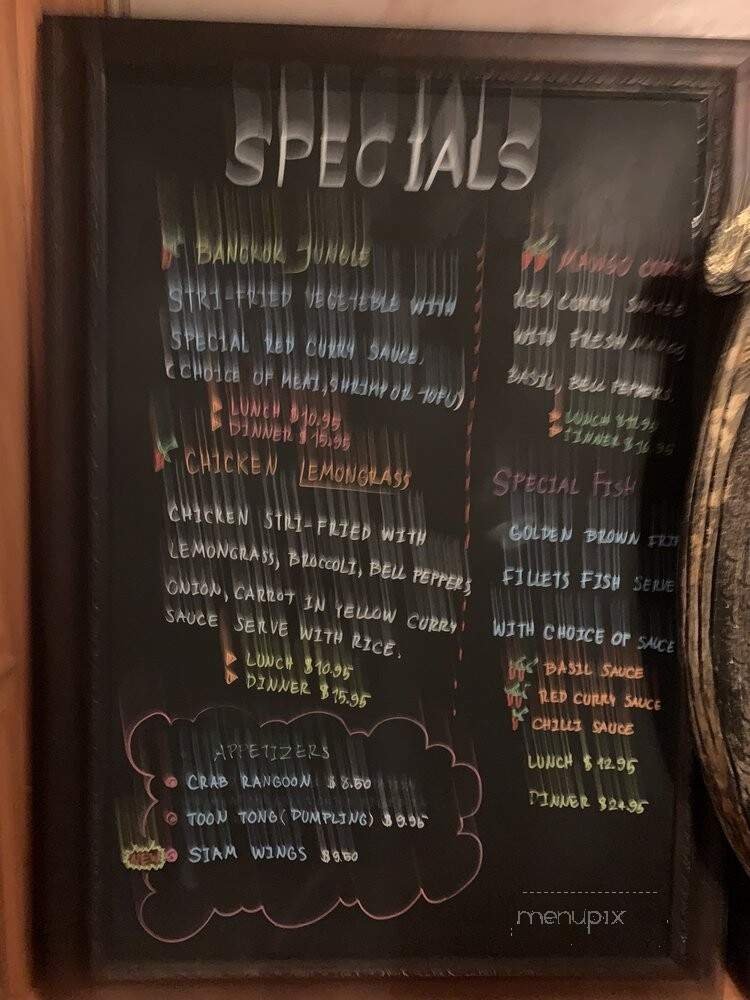 SPECIALS
BANGKOK JUNGLE
STRI-FRIED VEGETEBLE WITH
SPECIAL RED CURRY SAUCE.
(CHOICE OF MEAT, SHRIMP OR TOFU)
LUNCH $10.95
DINNER $15.95
CHICKEN LEMONGRASS
CHICKEN STRI-FRIED WITH
LEMONGRASS, BROCCOLI, BELL PEPPERS
ONION, CARROT IN YELLOW CURRY
SAUCE SERVE WITH RICE.
LUNCH $10.95
DINNER $15.95
APPETIZERS
CRAB RANGOON $8.50
TOON TONG (DUMPLING) $9.95
NEW SIAM WINGS $9.50
MANGO CURRY
RED CURRY
WITH FRESH MANGO
BASIL, BELL PEPPERS,
LUNCH
DINNER
SPECIAL FISH
GOLDEN BROWN
FILLETS FISH SERVE
WITH CHOICE OF SAUCE
BASIL SAUCE
RED CURRY SAUCE
CHILLI SAUCE
LUNCH $12.95
DINNER $24.95
menupix